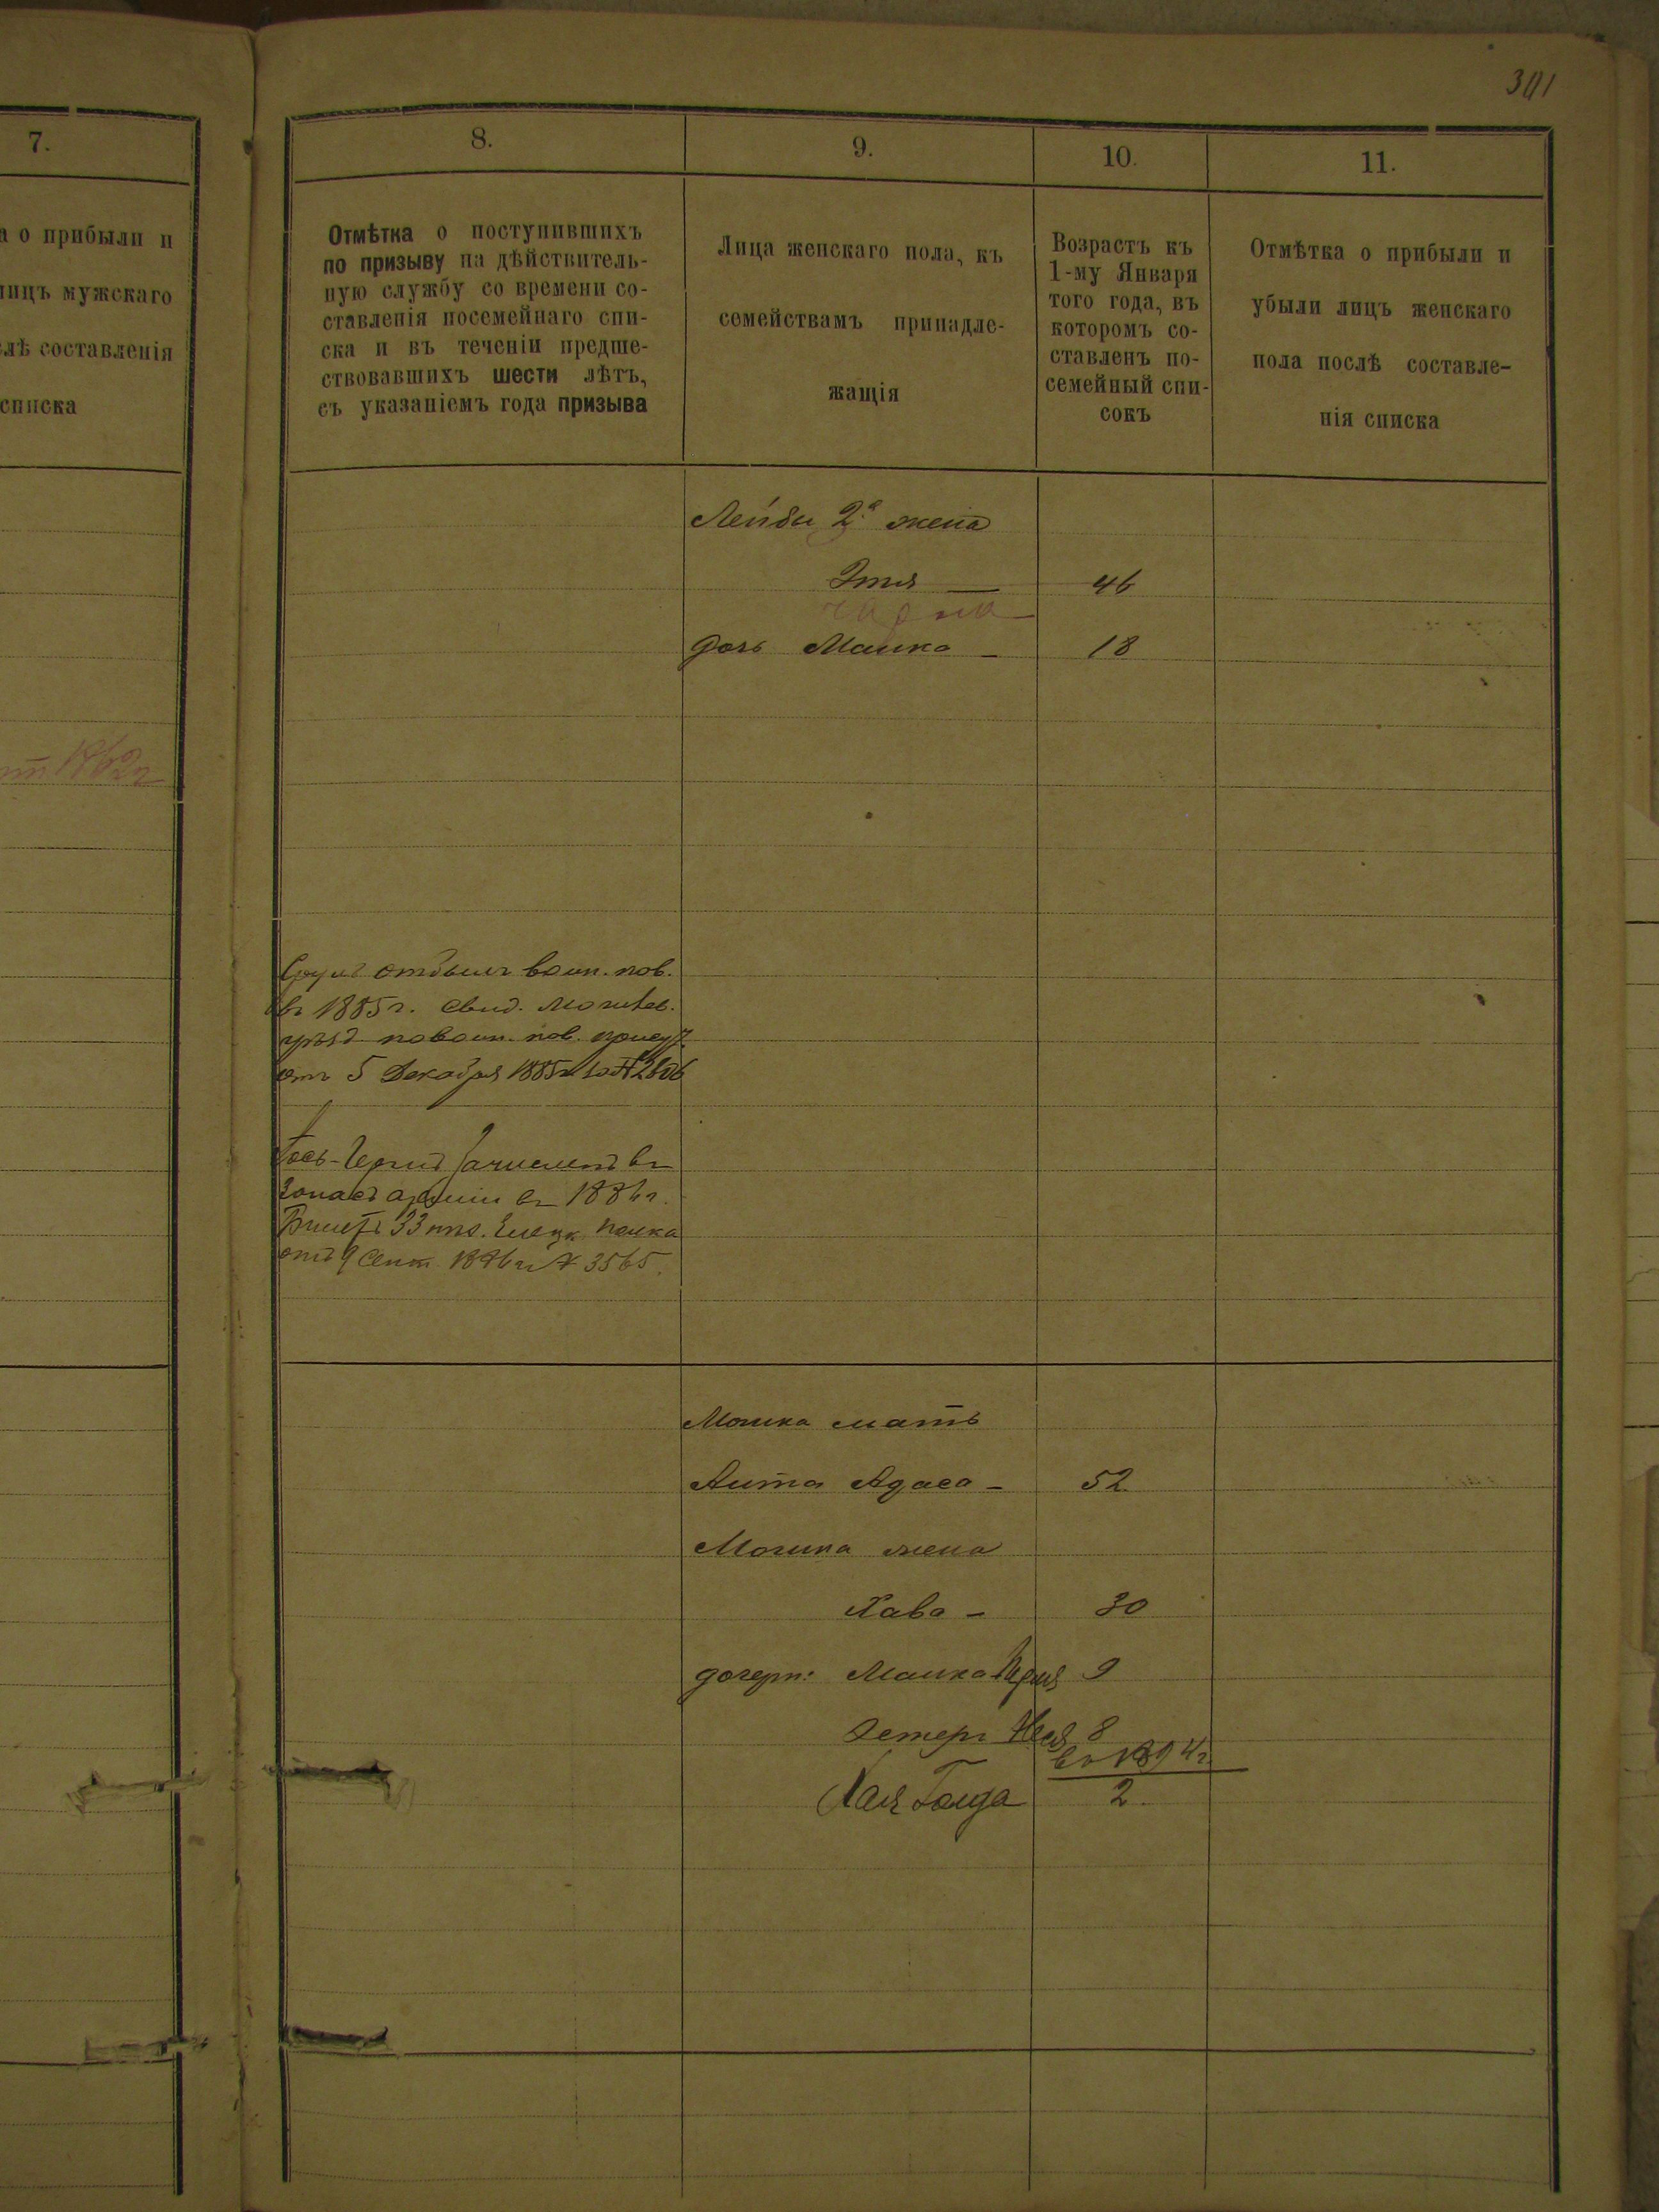 301
7.
а о прибыли и
лицъ мужскаго
слѣ составленія
списка
1862 г
8.
Отмѣтка о поступившихъ
по призыву на дѣйствитель-
ную службу со времени со-
ставленія посемейнаго спи-
ска и въ теченіи предше-
ствовавшихъ шести лѣтъ,
съ указаніемъ года призыва
9.
Лица женскаго пола, къ
семействамъ принадле-
жащія
10.
Возрастъ къ
1-му Января
того года, въ
которомъ со-
ставленъ по-
семейный спи-
сокъ
11.
Отмѣтка о прибыли и
убыли лицъ женскаго
пола послѣ составле-
нія списка
Лейбы 2я жена
Этя — 46
дочь Малка — 18
Сруль отбылъ воин. пов.
въ 1885 г. свид. Могилев.
уѣзд. по воин. пов. присут.
отъ 5 Декабря 1885 г. за № 2606
зачисленъ въ
запасъ арміи въ 1886 г.
Билетъ 33 пѣх. Елецк. полка
отъ 9 Сент. 1886 г. № 3565.
Мошка мать
Адаса — 52
Мошка жена
Хава — 30
дочери: Малка 9
Эстеръ 8
въ 1894 г.
Хая Голда 2.